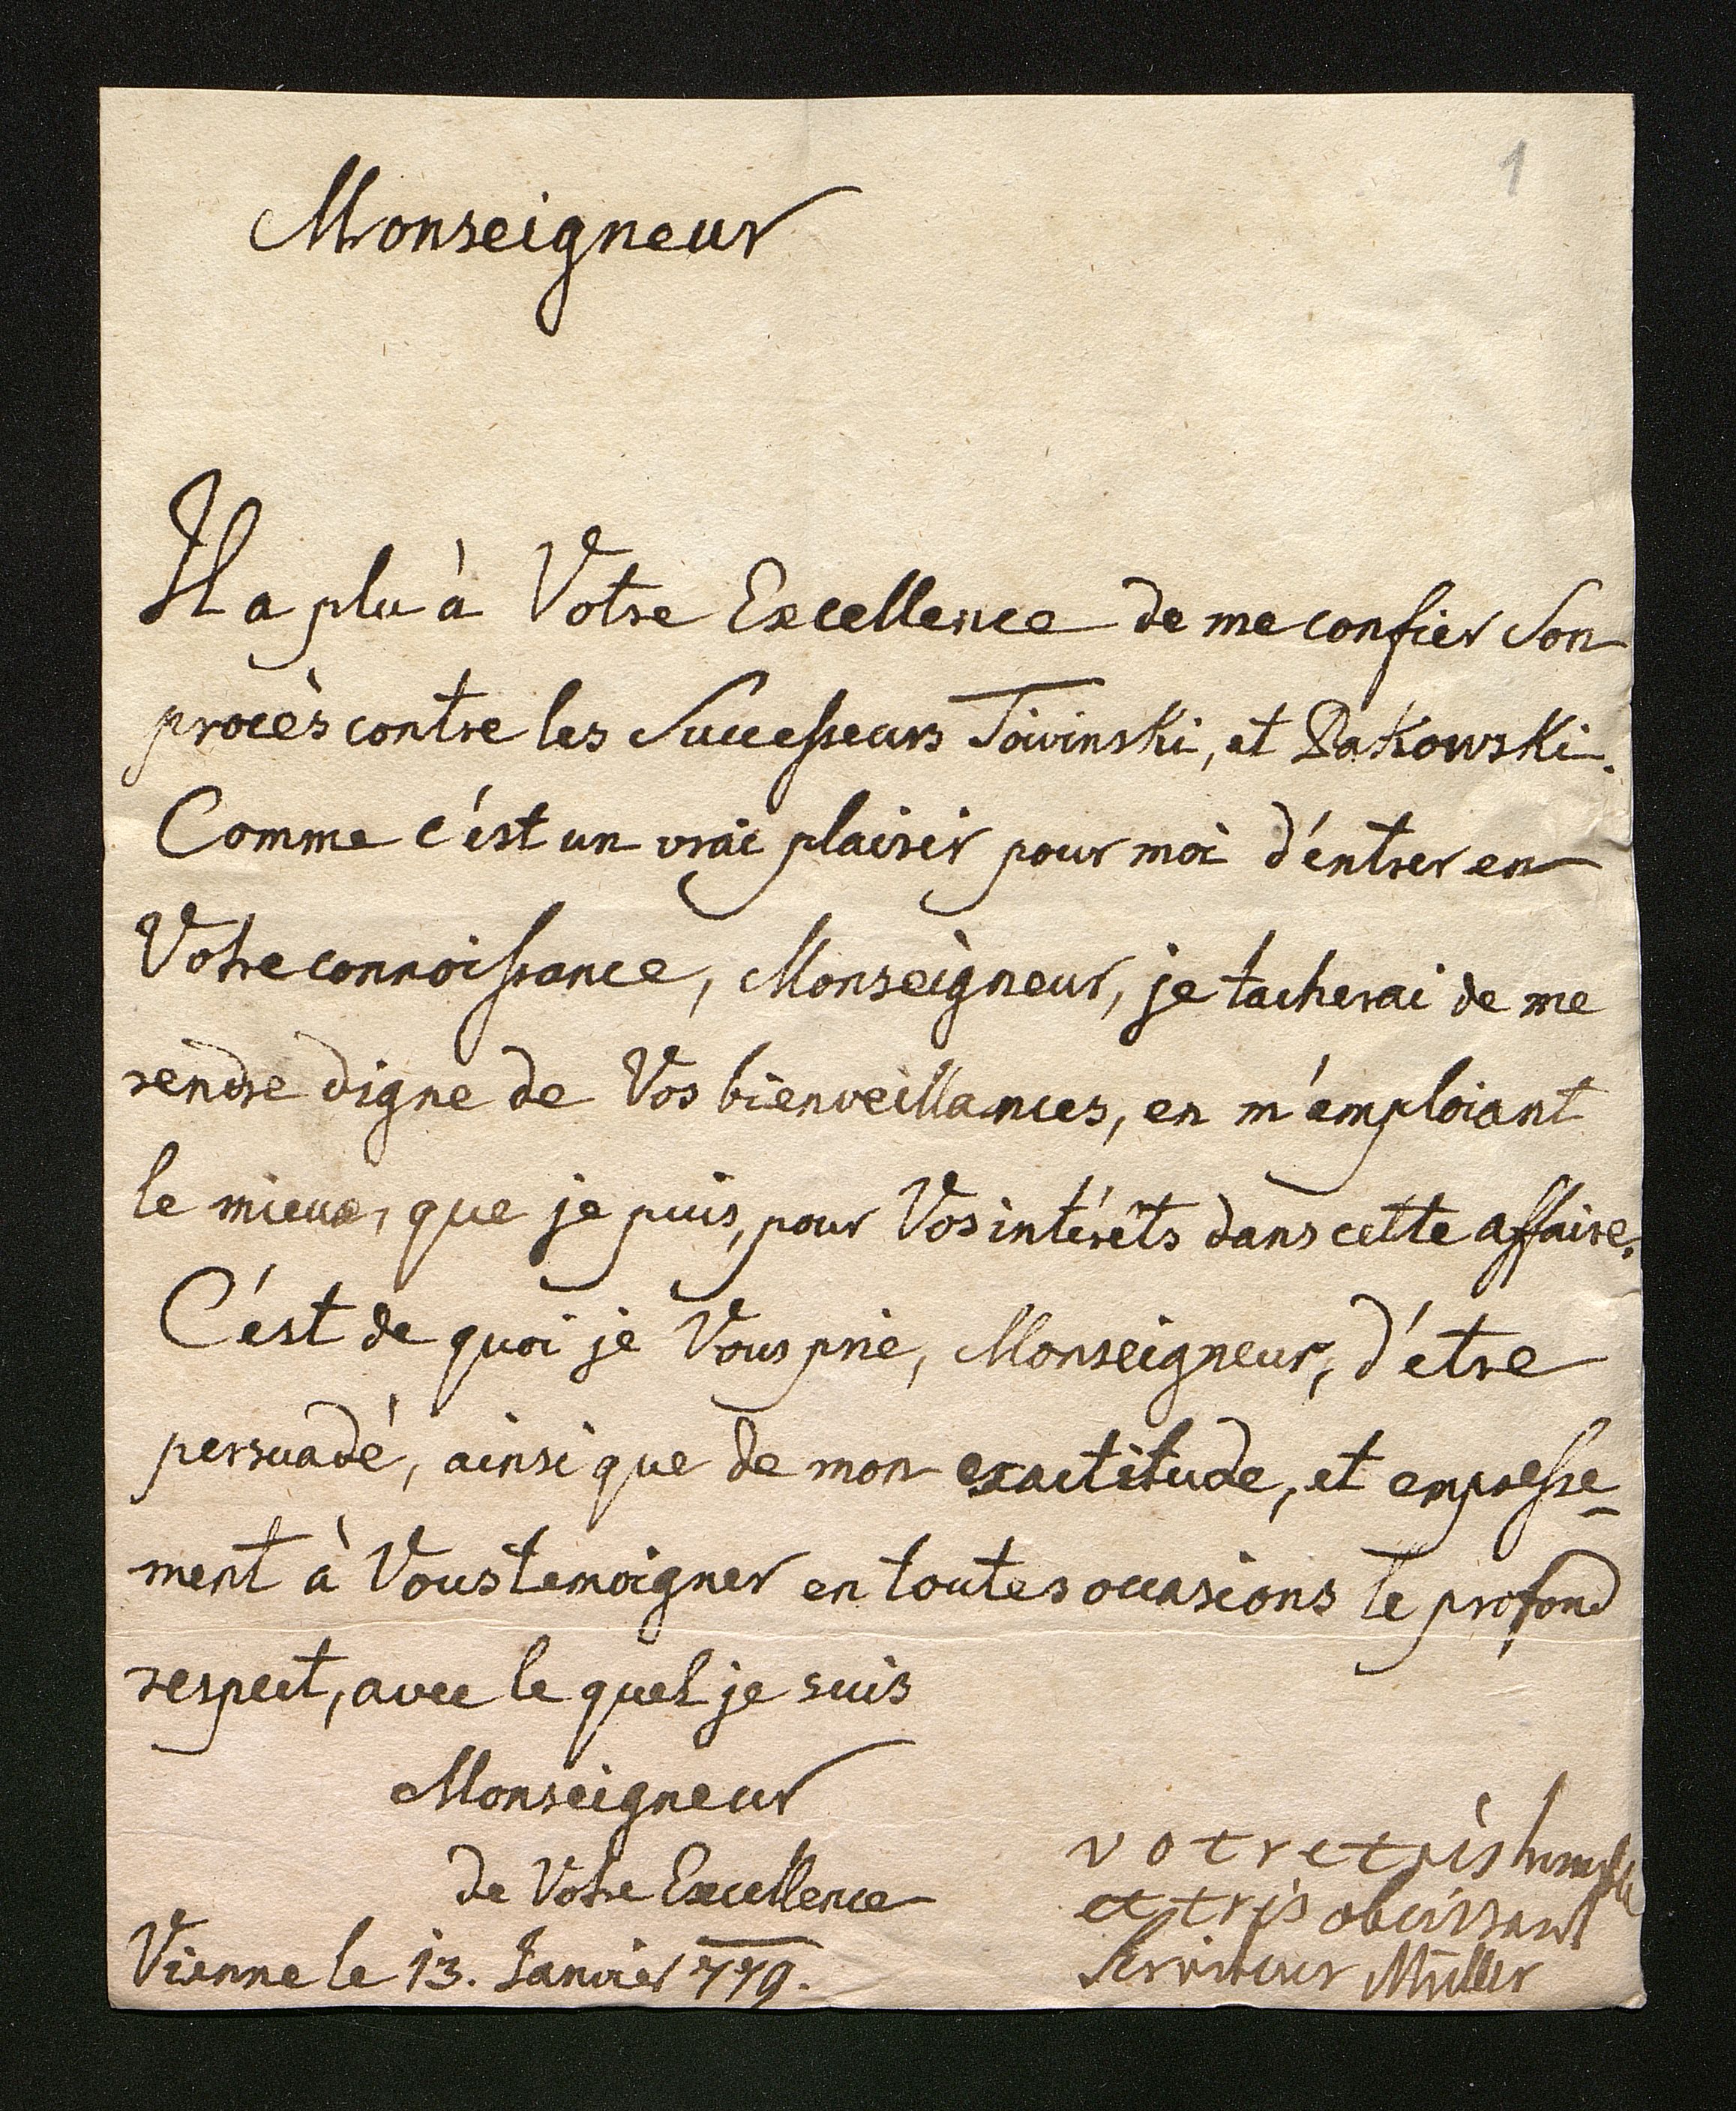 1
Monseigneur
Il a plu à Votre Excellence de me confier Son
procès contre les Successeurs Toivinski, et Rakowski.
Comme c'ést un vrai plaisir pour moi d'éntrer en
Votre connoissance, Monseigneur, je tacherai de me
rendre digne de Vos bienveillances, en m'emploiant
le mieux, que je puis, pour Vos intérêts dans cette affaire.
C'ést de quoi je Vous prie, Monseigneur, d'étre
persuadé, ainsi que de mon exactitude, et empresse-
ment à Vous temoigner en toutes occasions le profond
respect, avec le quel je suis
Monseigneur
de Votre Excellence
Vienne le 13. Janvier 779.
votre très humble
et très obeissant
Serviteur Müller